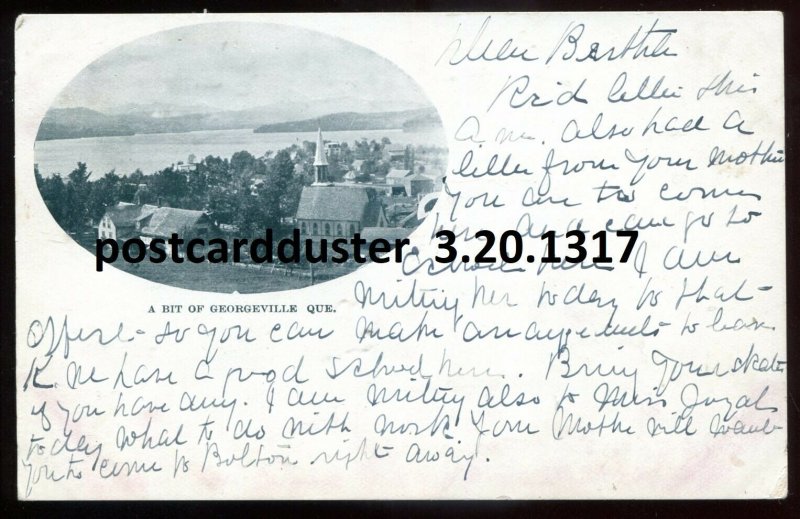 Dear Bertha
Rec'd letter this
A.M. Also had a
letter from your mother
you are to come
here and can go to
School here I am
writing her today to that
effect - so you can make arrangements to leave
K. We have a good school here. Bring your skates
if you have any. I am writing also to Miss
today what to do with work your Mother will want
you to come to Bolton right away.
postcardduster_3.20.1317
A BIT OF GEORGEVILLE QUE.